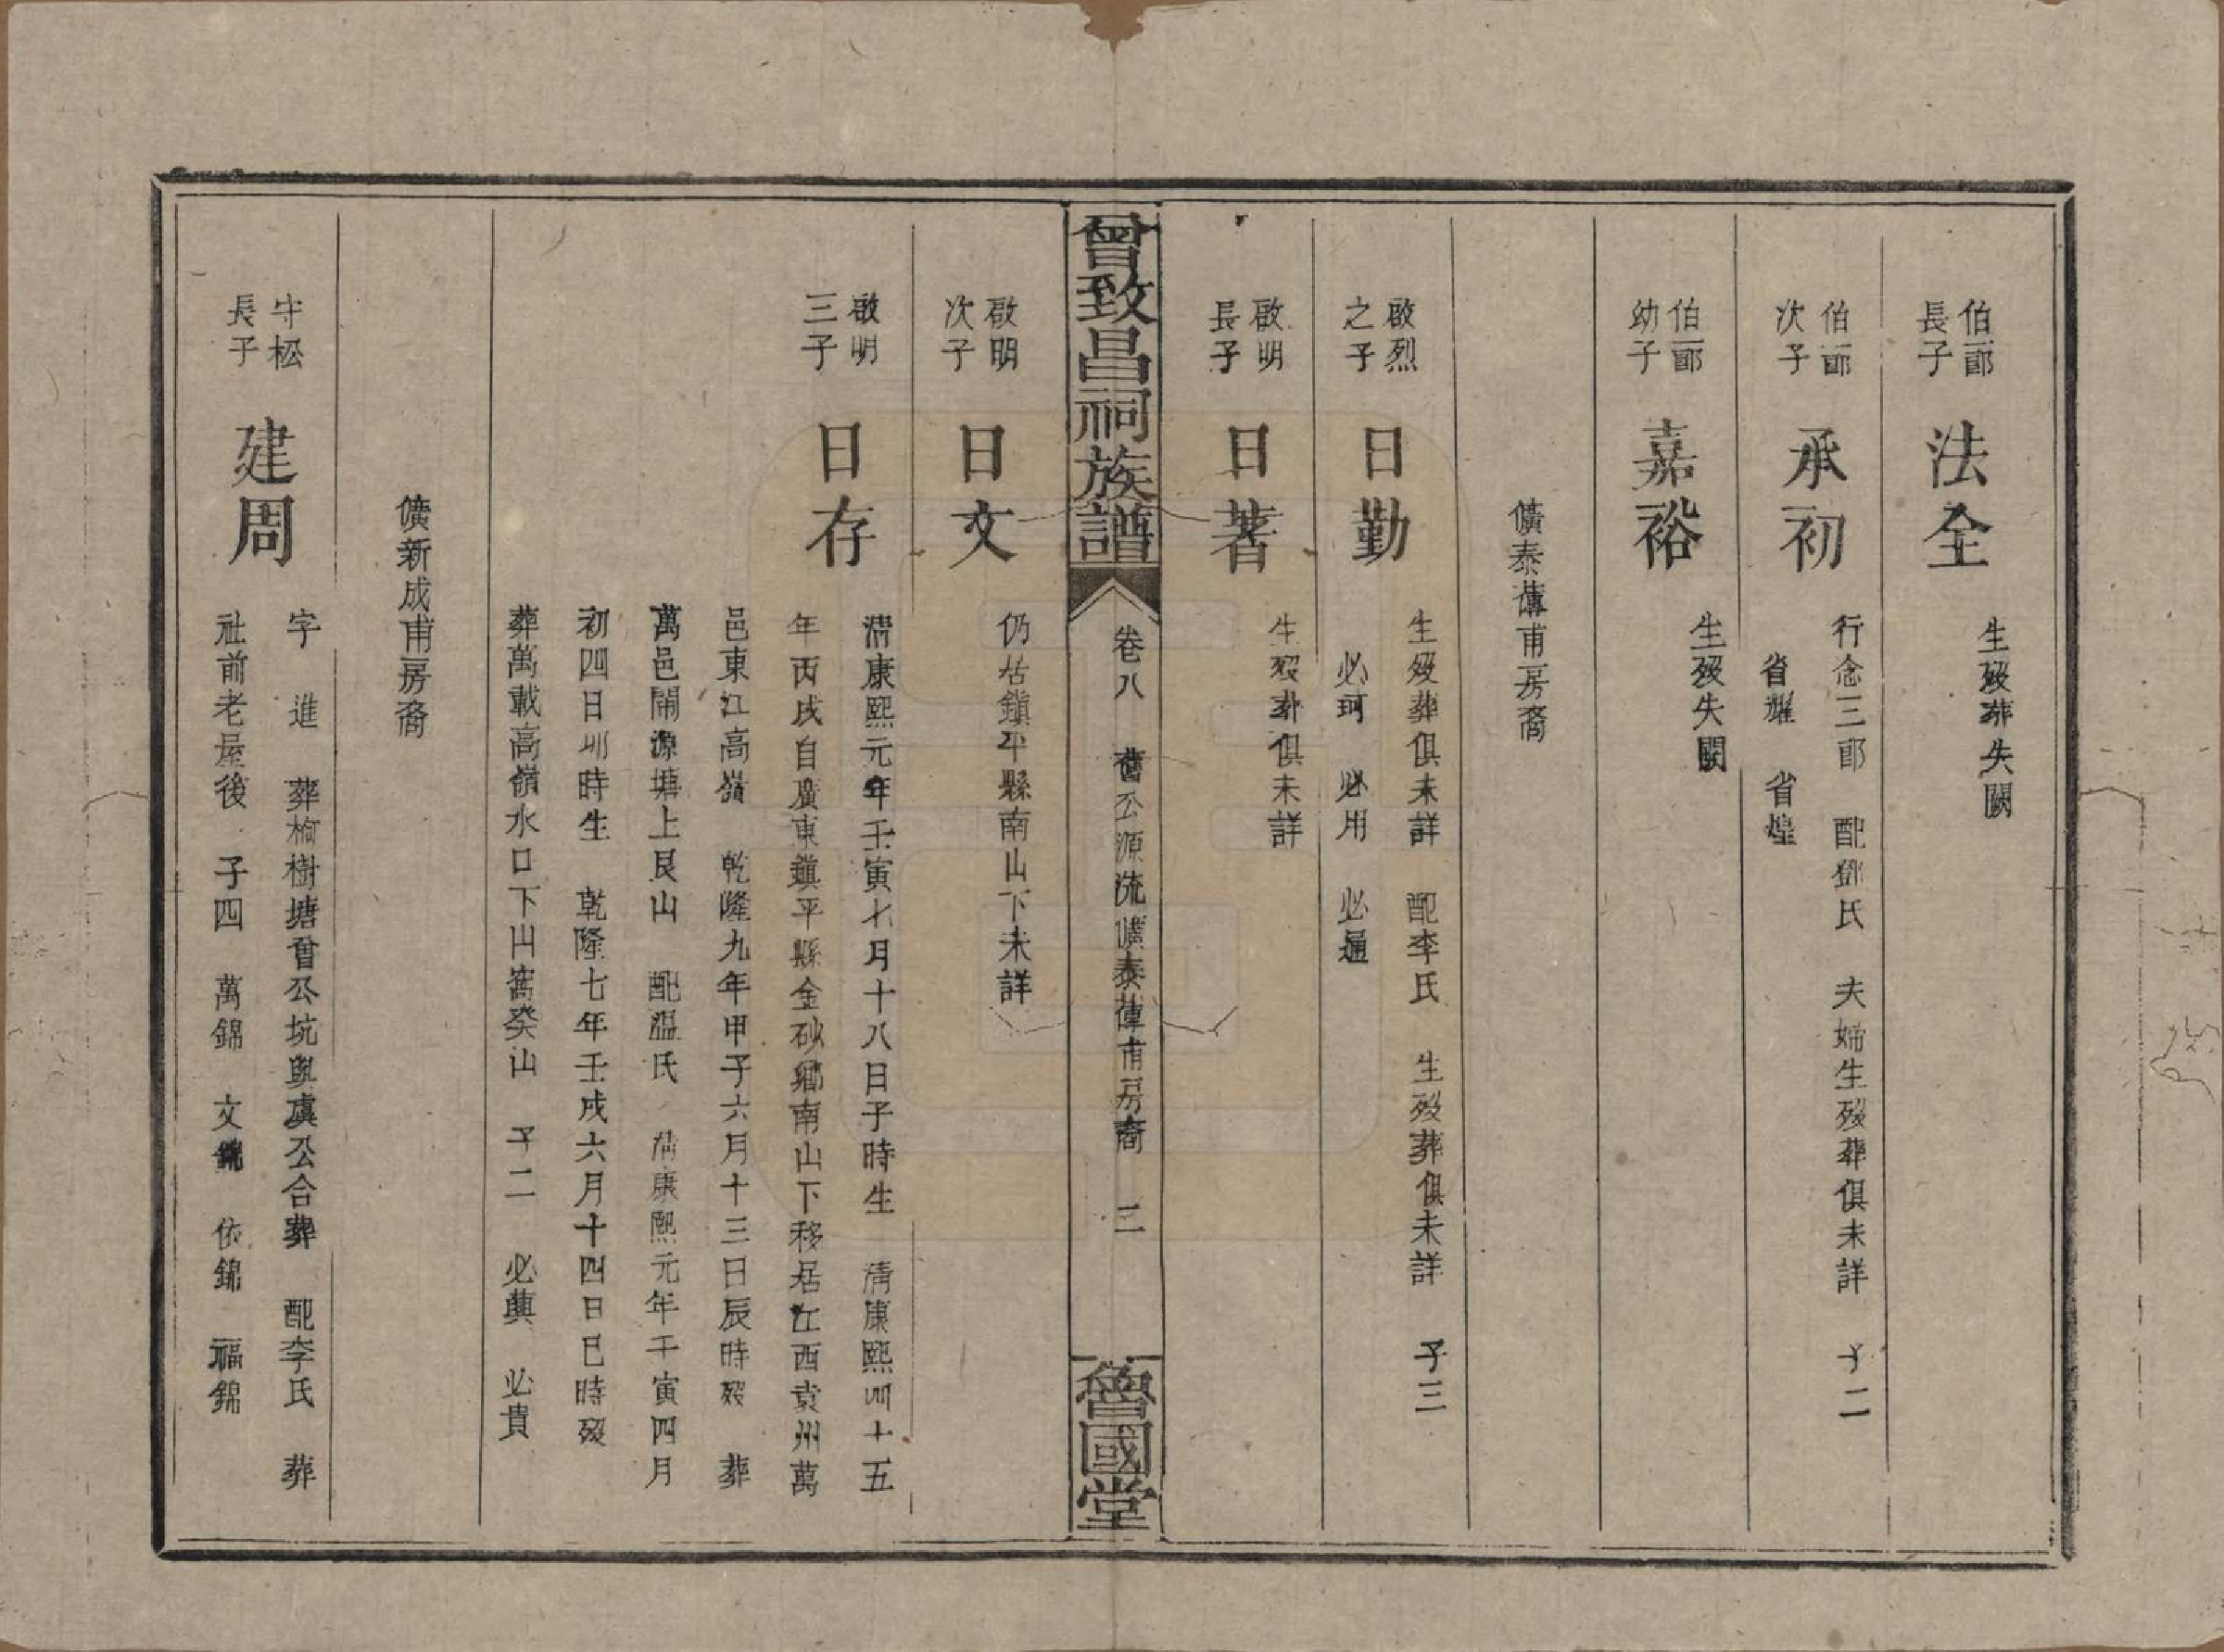 伯二郎
長子
法全
生歿葬失闕
伯二郎
次子
承初
行念三郎 配鄧氏 夫婦生歿葬俱未詳 子二
省耀 省煌
伯二郎
幼子
嘉裕
生歿失闕
儣泰傳甫房裔
啟烈
之子
日勤
生歿葬俱未詳 配李氏 生歿葬俱未詳 子三
必珂 必用 必通
啟明
長子
日著
生歿葬俱未詳
曾致昌祠族譜
卷八 舊公源流儣泰傳甫房裔 二
魯國堂
啟明
次子
日文
仍居鎮平縣南山下未詳
啟明
三子
日存
清康熙元年壬寅七月十八日子時生 清康熙四十五
年丙戌自廣東鎮平縣金砂鄉南山下移居江西袁州萬
邑東江高嶺 乾隆九年甲子六月十三日辰時歿 葬
萬邑鬧源塘上艮山 配溫氏 清康熙元年壬寅四月
初四日卯時生 乾隆七年壬戌六月十四日巳時歿
葬萬載高嶺水口下山窩癸山 子二 必興 必貴
儣新成甫房裔
守松
長子
建周
字 進 葬檎樹塘曾公坑與虞公合葬 配李氏 葬
社前老屋後 子四 萬錦 文錦 依錦 福錦